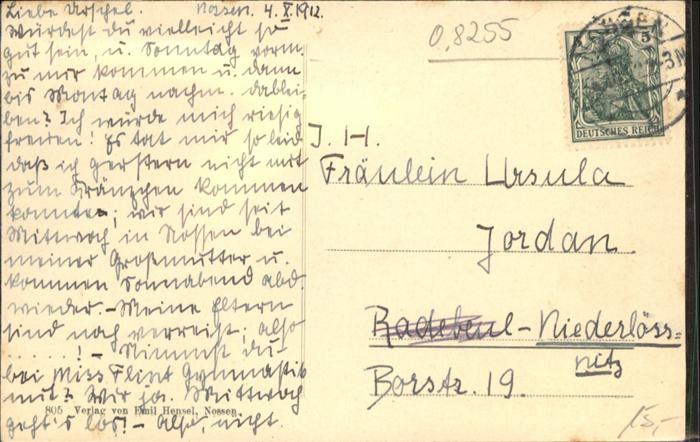 Liebe Urschel. Nossen. 4. X. 1912.
Würdest du vielleicht so
gut sein, u. Sonntag vorm.
zu mir kommen u. dann
bis Montag nachm. dablei-
ben? Ich würde mich riesig
freuen! Es tat mir so leid
daß ich gerstern nicht mit
zum Kränzchen kommen
konnte; wir sind seit
Mittwoch in Nossen bei
meiner Großmutter u.
kommen Sonnabend abd.
wieder. - Meine Eltern
sind noch verreist; also
. . . . . ! - Nimmst du
bei Miss Flint Gymnastik
mit? Wir ja. Mittwoch
geht's los! - Also, nicht.
805 Verlag von Emil Hensel, Nossen
0,8255
NOSSEN
DEUTSCHES REICH
I. H.
Fräulein Ursula
Jordan
Radebeul-Niederlöss=
nitz
Borstr. 19.
15,-